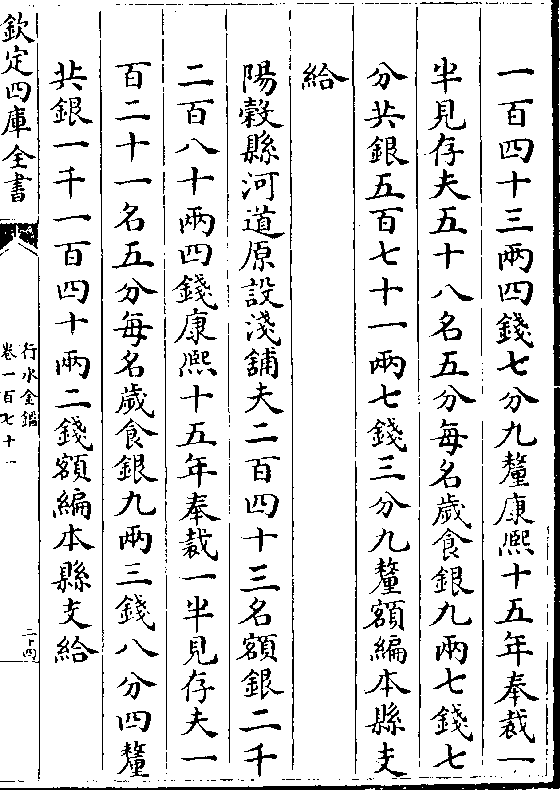 一百四十三兩四錢七分九釐康熙十五年奉裁一
半見存夫五十八名五分每名歲食銀九兩七錢七
分共銀五百七十一兩七錢三分九釐額編本縣支
給
陽穀縣河道原設淺舖夫二百四十三名額銀二千
二百八十兩四錢康熙十五年奉裁一半見存夫一
百二十一名五分每名歲食銀九兩三錢八分四釐
共銀一千一百四十兩二錢額編本縣支給
欽定四庫全書
行水金鑑
卷一百七十一
二十四